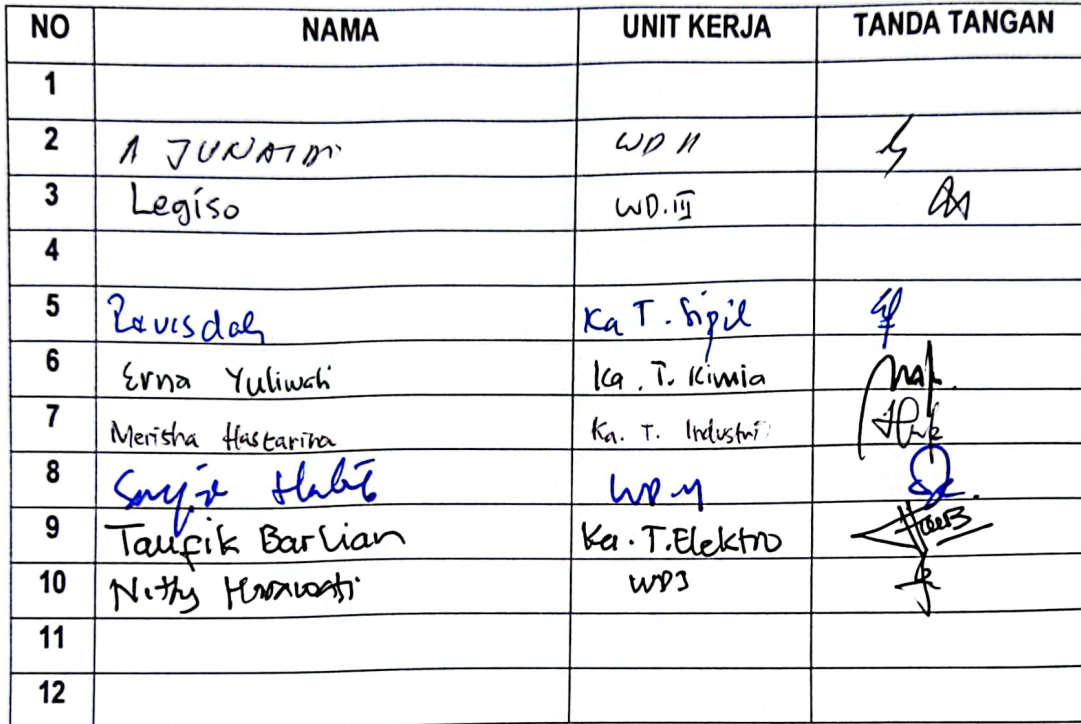 NO NAMA UNIT KERJA TANDA TANGAN
1
2 A JUNAIDI WD II
3 Legiso WD.III
4
5 Revisdah Ka T. Sipil
6 Erna Yuliwati Ka. T. Kimia
7 Merisha Hastarina Ka. T. Industri
8 WD
9 Taufik Barlian Ka. T. Elektro
10 Netty
11
12